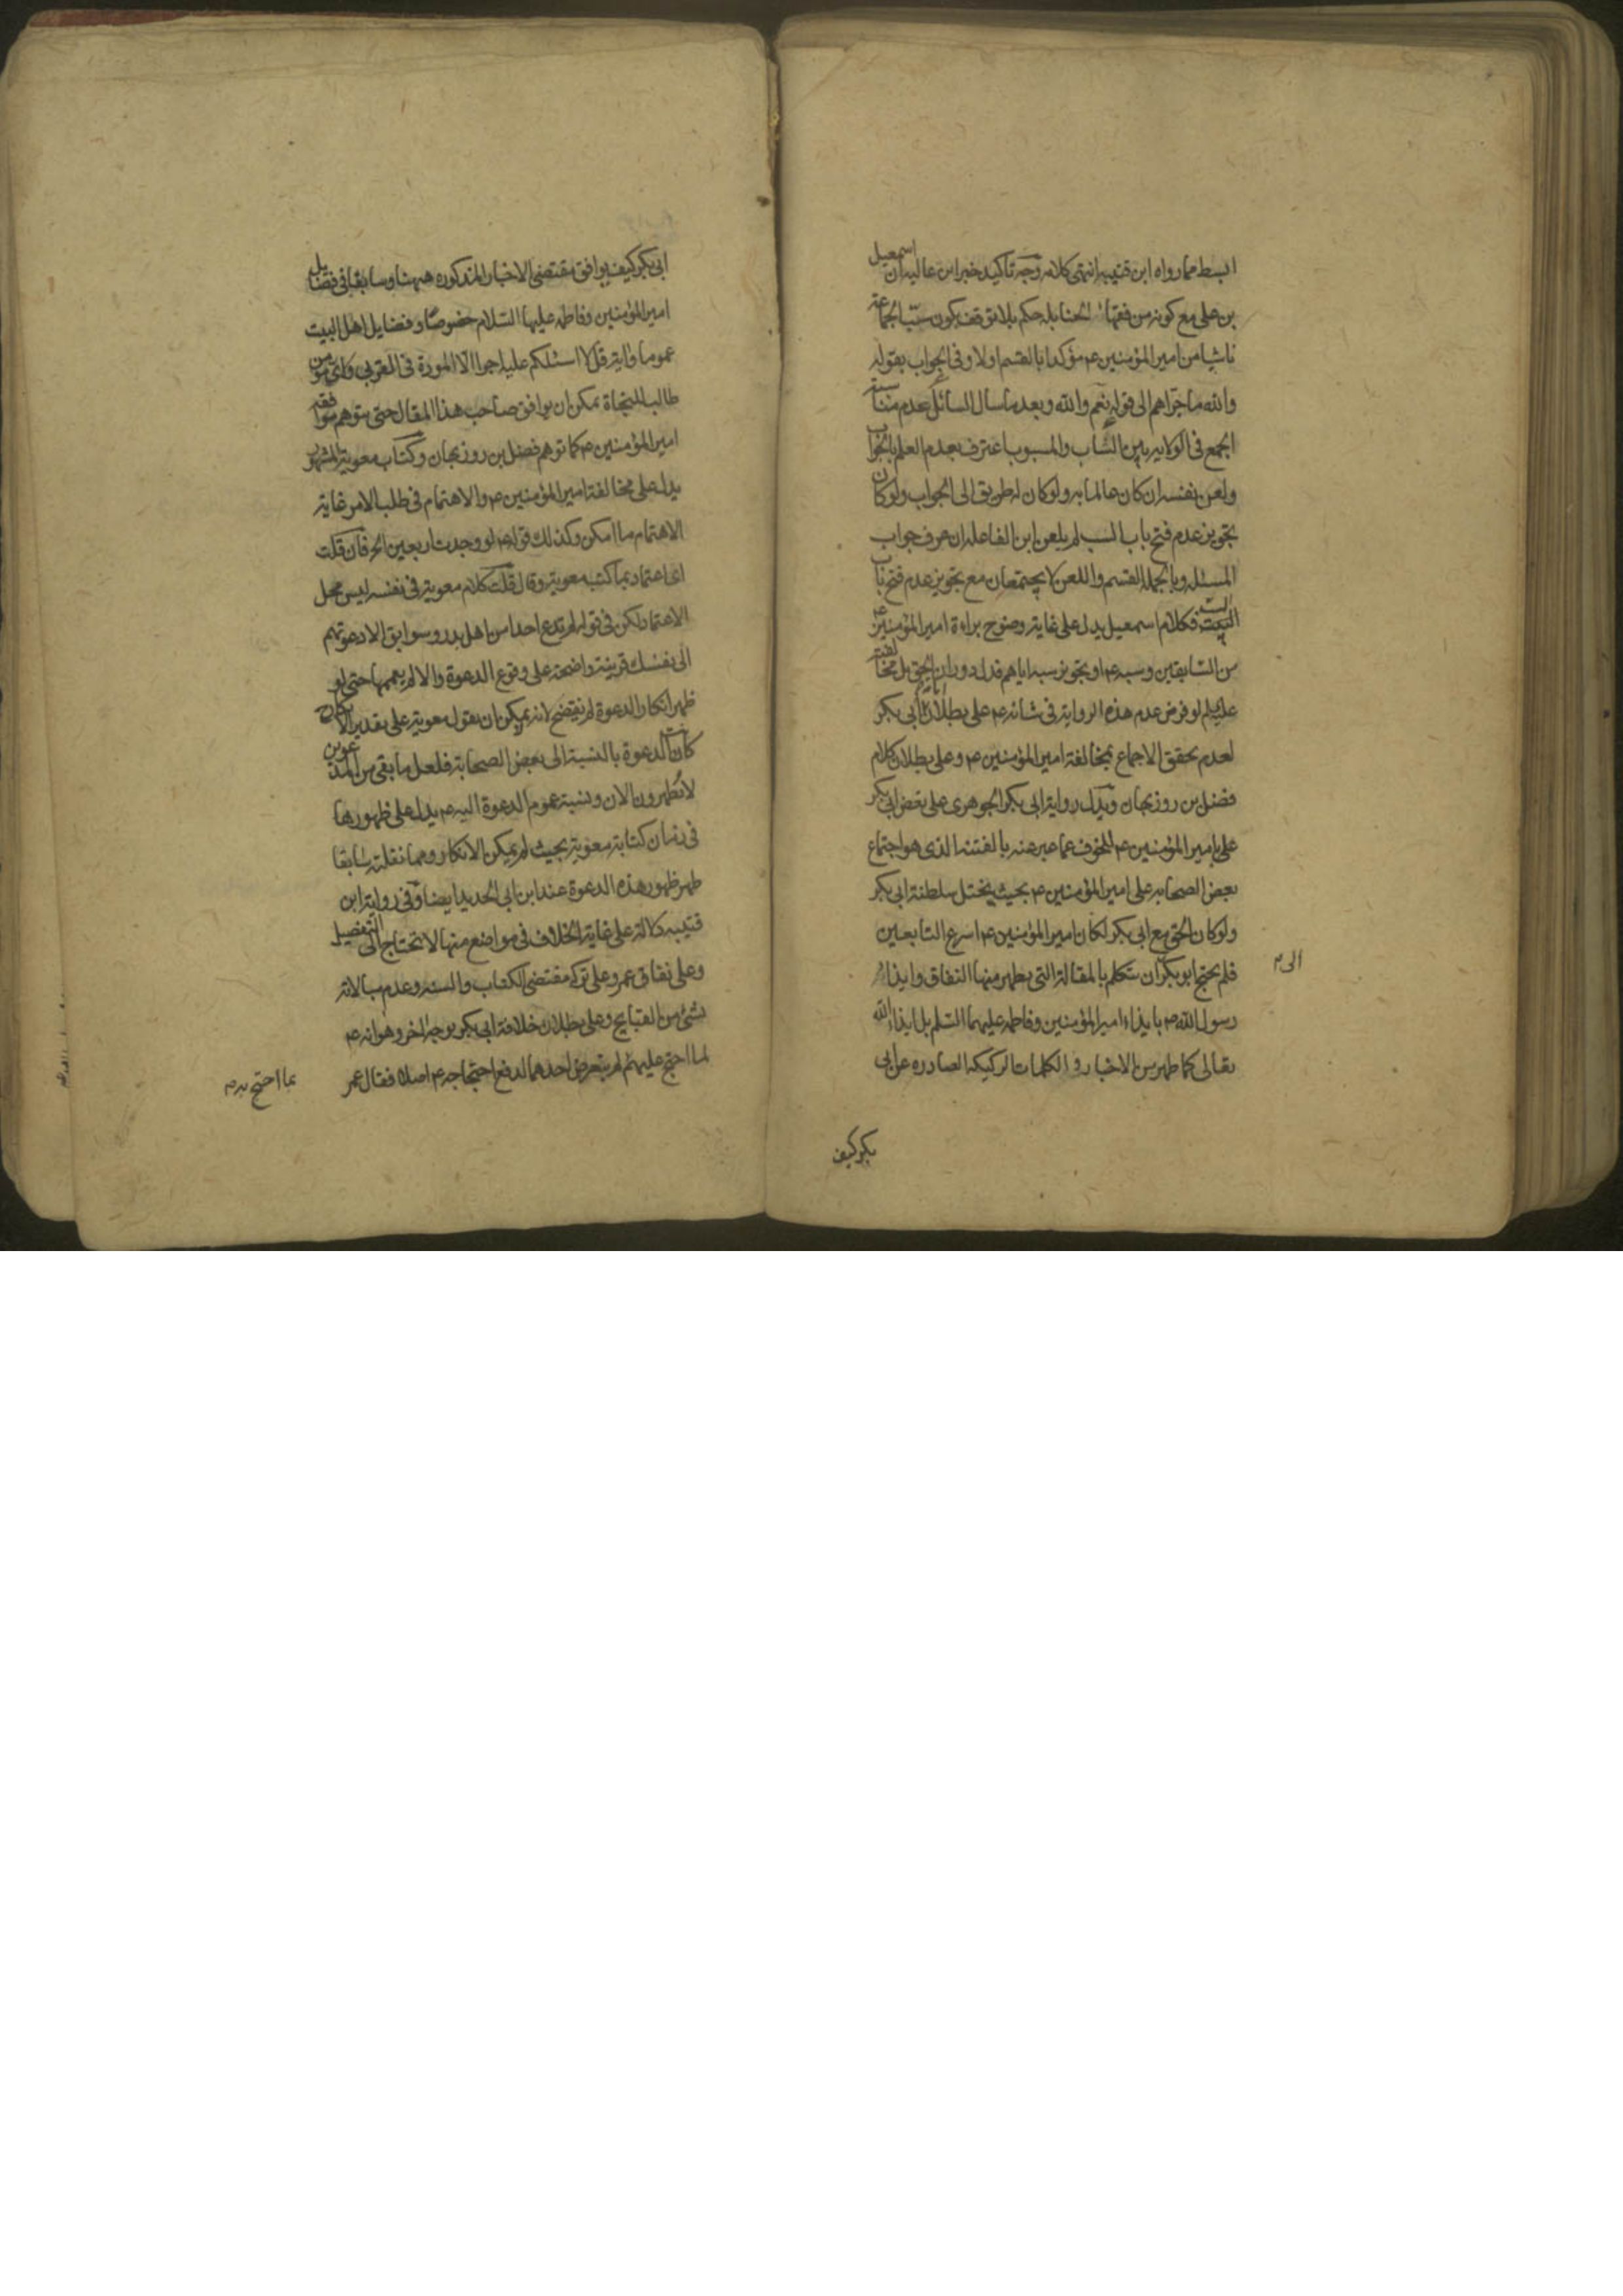 ابسط مما رواه ابن قتيبه انتهى كلامه وجه تاكيد خبر ابن عاليه ان اسمعيل
بن على مع كونه من فقهاء الحنابله حكم بلا توقف بكون سبّ الجماعة
ناشيا من امير المؤمنين ع م مؤكدا بالقسم اولا وفى الجواب بقوله
والله ما جرّاهم الى قوله نعم والله وبعد ما سال السائل عدم مناسبة
الجمع فى الولايه بين السّاب والمسبوب اعترف بعدم العلم بالجواب
ولعن نفسه ان كان عالما به ولو كان له طريق الى الجواب ولو كان
بتجويز عدم فتح باب السب لم يلعن ابن الفاعله ان عرف جواب
المسئله وبالجمله القسم واللعن لا يجتمعان مع تجويز عدم فتح باب
السب فكلام اسمعيل يدل على غاية وضوح براءة امير المؤمنين ع
من السابقين وسبه ع م او تجويز سبه اياهم فدل دوران الحق بل مخالفته
لو فرض عدم هذه الرواية فى شانه ع م على بطلان ابى بكر
لعدم تحقق الاجماع بمخالفة امير المؤمنين ع م وعلى بطلان كلام
فضل بن روزبهان ويدل رواية ابى بكر الجوهرى على بغض ابى بكر
على امير المؤمنين ع م للخوف عما عبر عنه بالفتنه الذى هو اجتماع
بعض الصحابه على امير المؤمنين ع م بحيث يختل سلطنة ابى بكر
ولو كان الحق مع ابى بكر لكان امير المؤمنين ع م اسرع التابعين
فلم يحتج ابو بكر ان يتكلم بالمقالة التى يظهر منها النفاق وايذاء
الى م
رسول الله ص بايذاء امير المؤمنين وفاطمه عليهما السّلم بل ايذاء الله
تعالى كما ظهر من الاخبار و الكلمات الركيكه الصادره عن ابى
بكر كيف
ابى بكر كيف يوافق مقتضى الاخبار المذكوره ههنا وسابقا فى فضايل
امير المؤمنين وفاطمه عليها السّلام خصوصا وفضايل اهل البيت
عموما واية قل لا اسئلكم عليه اجرا الّا المودة فى القربى واى مؤمن
طالب للنجاة يمكن ان يوافق صاحب هذا المقال حتى يتوهم موافقة
امير المؤمنين ع م كما توهم فضل بن روزبهان وكتاب معوية المشهور
يدل على مخالفة امير المؤمنين ع م والاهتمام فى طلب الامر غاية
الاهتمام ما امكن وكذلك قوله ع م لو وجدت اربعين الخ فان قلت
اى اعتماد بما كتب معوية وقال قلت كلام معوية فى نفسه ليس محل
الاعتماد لكن فى قوله لم تدع احدا من اهل بدر وسوابق الا دعوتهم
الى نفسك قرينة واضحة على وقوع الدعوة والا لم يعممها حتى لو
ظهر انكار الدعوة لم يفتضح لانه يمكن ان يقول معوية على تقدير الانكار
كانت الدعوة بالنسبة الى بعض الصحابة فلعل ما بقى من المدعوين
لا يظهرون الان ونسبة عموم الدعوة اليه ع م يدل على ظهورها
فى زمان كتابة معوية بحيث لم يمكن الانكار ومما نقلته سابقا
ظهر ظهور هذه الدعوة عند ابن ابى الحديد ايضا وفى رواية ابن
قتيبه دلالة على غاية الخلاف فى مواضع منها لا تحتاج الى التفصيل
وعلى نفاق عمر وعلى ترك مقتضى الكتاب والسنه وعدم مبالاته
بشئ من القبايح وعلى بطلان خلافة ابى بكر بوجه اخر وهو انه ع م
لما احتج عليهم لم يتعرض احدهما لدفع احتجاجه ع م اصلا فقال عمر
بما احتج به م